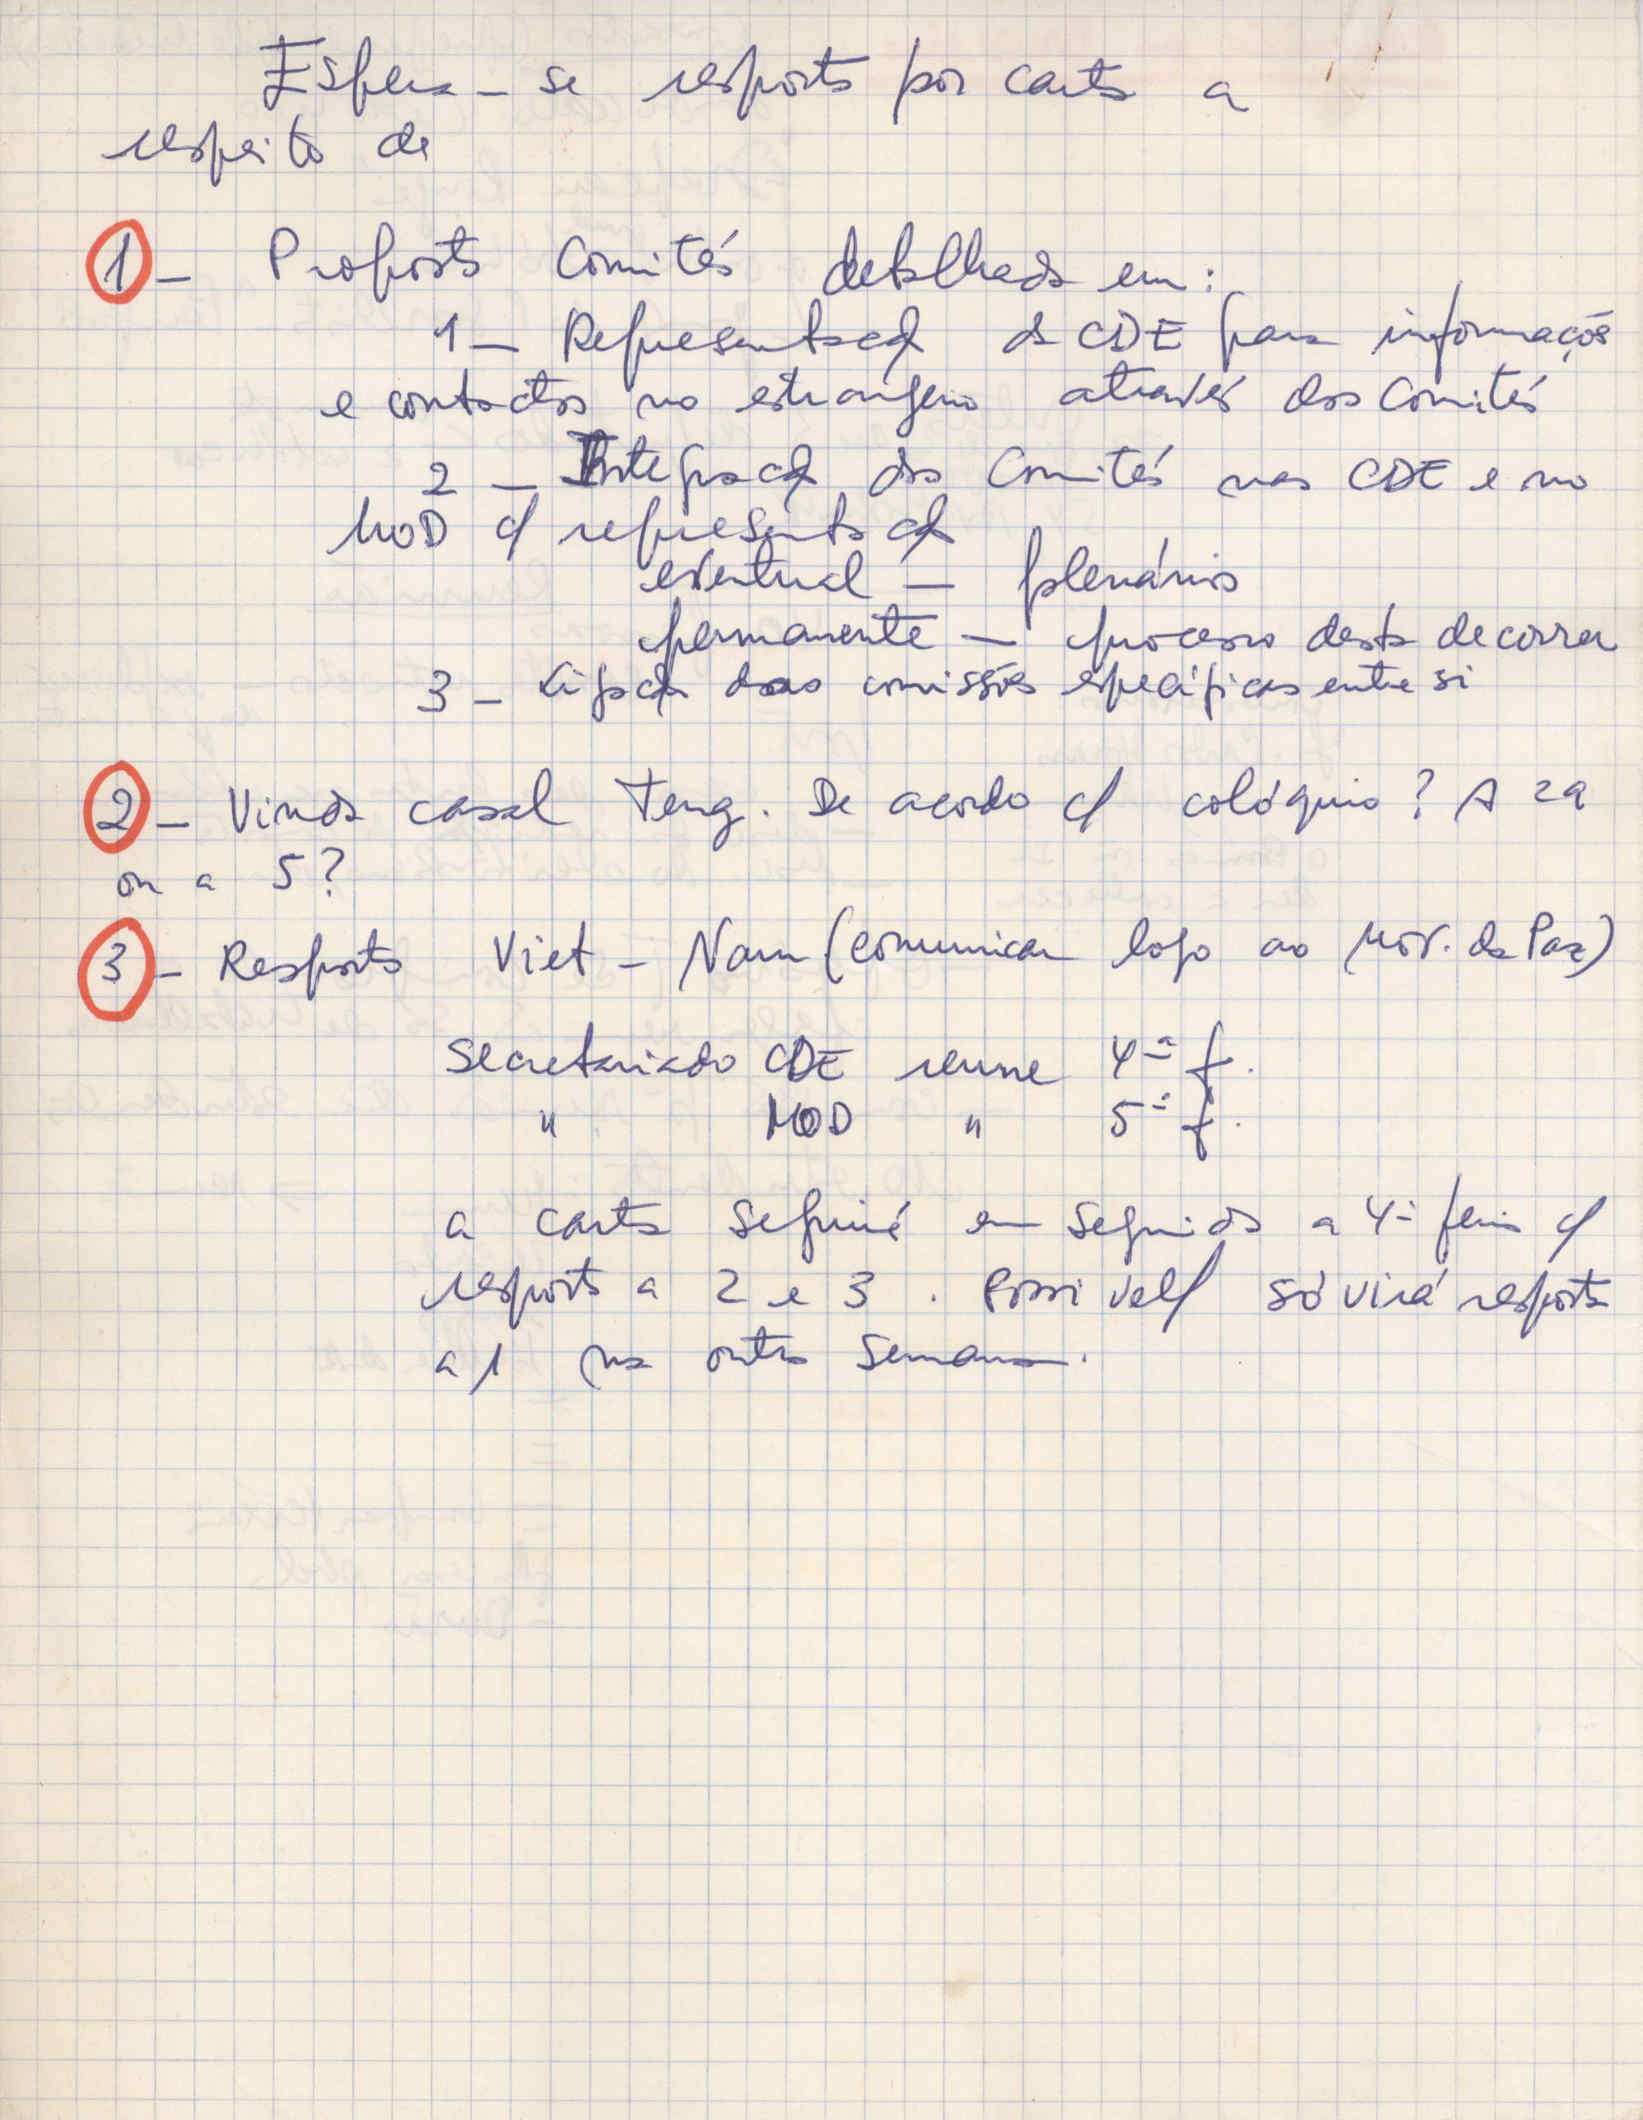 Espera-se resposta por carta a
respeito de
1 - Proposta Comités detalhada em:
1 - Representaçã da CDE para informações
e contactos no estrangeiro através dos Comités
2 - Integraçã dos Comités nas CDE e no
MOD c/ representaçã
eventual - plenários
permanente - processo desta decorrer
3 - Ligaçã das comissões específicas entre si
2 - Vinda casal Teng. De acordo c/ colóquio? A 29
ou a 5?
3 - Resposta Viet-Nam (comunicar logo ao Mov. da Paz)
Secretariado CDE reune 4ª f.
" MOD " 5ª f.
a carta seguirá em seguida a 4ª feira c/
resposta a 2 e 3. Possivel/ só virá resposta
a 1 na outra semana.